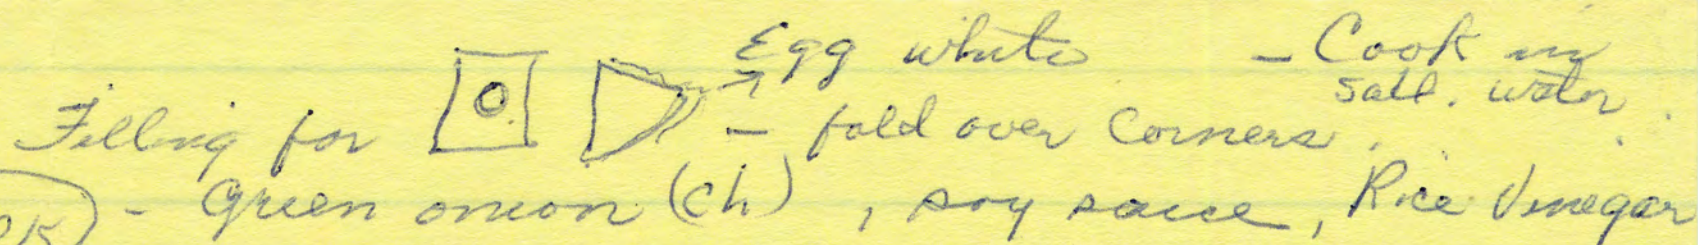 Egg white - Cook in
salt. water
Filling for - fold over corners.
- green onion (ch), soy sauce, Rice Vinegar